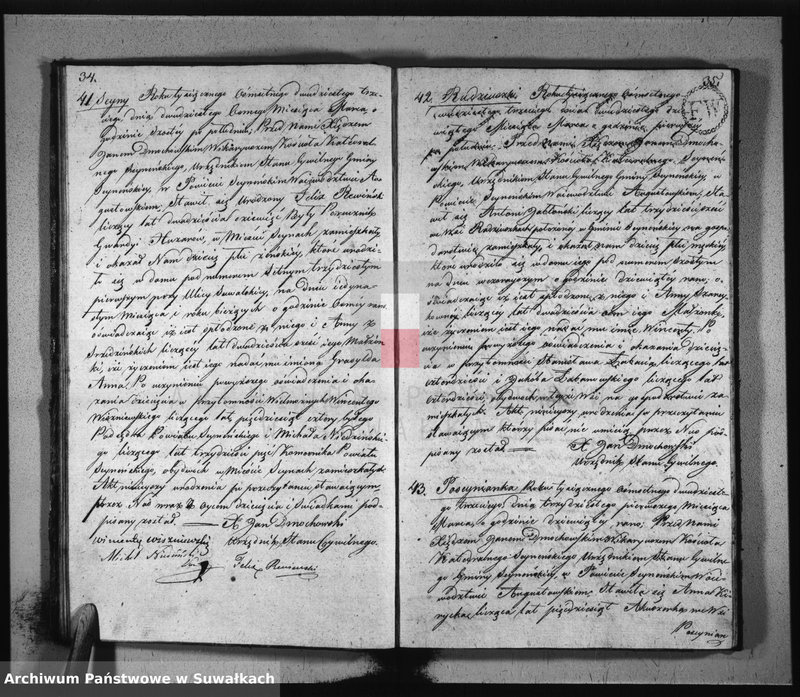 34.
41 Seyny Roku tysiącznego Ośmsetnego dwudziestego trze-
ciego dnia dwudziestego Osmego Miesiąca Marca o
godzinie szostej po południu, Przed Nami Xiędzem
Janem Dmochowskim Wikaryuszem Kościoła Katedral-
nego Seynenskiego, Urzędnikiem Stanu Cywilnego Gminy
Seynenskiey, w Powiecie Seynenskim Woiewództwie Au-
gustowskim, Stawił się Urodzony Felix Rewieński
liczący lat dwadzieścia dziewięć Były Porucznik
Gwardyi Huzarów, w Mieście Seynach zamieszkały
i okazał Nam dziecię płci żeńskiey, które urodzi-
ło się w domu pod numerem Setnym trzydziestym
pierwszym przy Ulicy Suwalskiey, na dniu iedyna-
stym Miesiąca i roku bieżących o godzinie Osmey rano
oświadczaiąc iż iest spłodzone z niego i Anny z
liczącey lat dwadzieścia sześć iego Małżon-
ki, iż życzeniem iest iego nadać mu imiona
Anna. Po uczynieniu powyższego oświadczenia i oka-
zania dziecięcia w Przytomności Wielmożnych Wincentego
Wiszniewskiego liczącego lat pięćdziesiąt cztery byłego
Podsędka Powiatu Seynenskiego i Michała
go liczącego lat trzydzieści pięć Komornika Powiatu
Seynenskiego, obydwóch w Mieście Seynach zamieszkałych
Akt ninieyszy urodzenia po przeczytaniu stawaiącym,
przez Nas wraz z Oycem dziecięcia i Świadkami pod-
pisany został.
X Jan Dmochowski
Wincenty Wiszniewski Urzędnik Stanu Cywilnego.
Michał
Felix Rewieński
35
FW
42 Radziuszki Roku tysiącznego Ośmsetnego
dwudziestego trzeciego, dnia dwudziestego dzie-
wiątego Miesiąca Marca o godzinie pierwszey
po południu, Przed Nami Xiędzem Janem Dmocho-
wskim Wikaryuszem Kościoła Katedralnego Seynen-
skiego, Urzędnikiem Stanu Cywilnego Gminy Seynenskiey, w
Powiecie Seynenskim Woiewództwie Augustowskim, Sta-
wił się Antoni Jabłoński liczący lat trzydzieści sześć
we wsi Radziuszkach położoney w Gminie Seynenskiey na gospo-
darstwie zamieszkały, i okazał nam dziecię płci męskiey,
które urodziło się w domu iego pod numerem szostym
na dniu wczorayszym o godzinie dziewiątey rano, o-
świadczaiąc iż iest spłodzone z niego i Anny
liczącey lat dwadzieścia ośm iego Małżonki,
iż życzeniem iest iego nadać mu imie Wincenty. Po
uczynieniu powyższego oświadczenia i okazania dziecię-
cia w przytomności Stanisława liczącego lat
czterdzieści i Jakóba liczącego lat
czterdzieści, obydwóch w tey Wsi na gospodarstwie za-
mieszkałych. Akt ninieyszy urodzenia po przeczytaniu
stawaiącym którzy pisać nie umieią przez Nas pod-
pisany został.
X Jan Dmochowski
Urzędnik Stanu Cywilnego.
43. Poseynianka Roku tysiącznego Ośmsetnego dwudzieste-
go trzeciego dnia trzydziestego pierwszego Miesiąca
Marca o godzinie dziewiątey rano, Przed Nami
Xiędzem Janem Dmochowskim Wikaryuszem Kościoła
Katedralnego Seynenskiego Urzędnikiem Stanu Cywilne-
go Gminy Seynenskiey, w Powiecie Seynenskim Woie-
wództwie Augustowskim, Stawiła się Anna
licząca lat pięćdziesiąt Akuszerka we Wsi
Poseynian
Archiwum Państwowe w Suwałkach